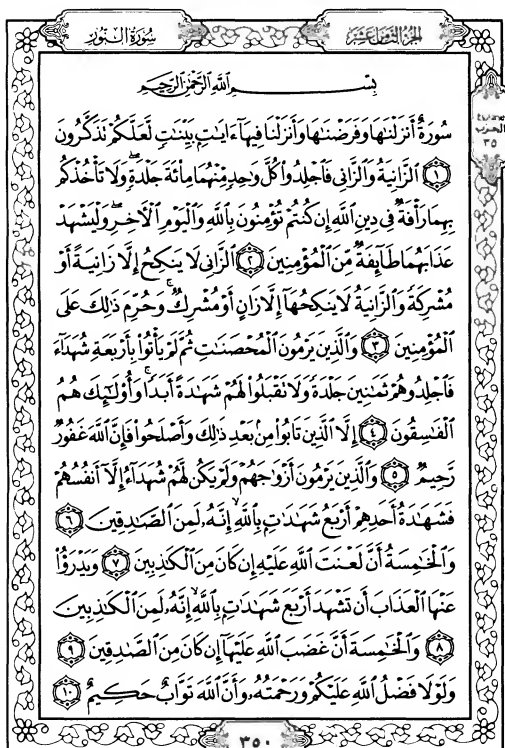 سُورَةُ النُّورِ
الجزء الثامن عشر
الحزب
٣٥
بِسْمِ اللَّهِ الرَّحْمَٰنِ الرَّحِيمِ
سُورَةٌ أَنزَلْنَٰهَا وَفَرَضْنَٰهَا وَأَنزَلْنَا فِيهَآ ءَايَٰتٍۭ بَيِّنَٰتٍ لَّعَلَّكُمْ تَذَكَّرُونَ
۝١ ٱلزَّانِيَةُ وَٱلزَّانِى فَٱجْلِدُوا۟ كُلَّ وَٰحِدٍ مِّنْهُمَا مِا۟ئَةَ جَلْدَةٍ ۖ وَلَا تَأْخُذْكُم
بِهِمَا رَأْفَةٌ فِى دِينِ ٱللَّهِ إِن كُنتُمْ تُؤْمِنُونَ بِٱللَّهِ وَٱلْيَوْمِ ٱلْءَاخِرِ ۖ وَلْيَشْهَدْ
عَذَابَهُمَا طَآئِفَةٌ مِّنَ ٱلْمُؤْمِنِينَ ۝٢ ٱلزَّانِى لَا يَنكِحُ إِلَّا زَانِيَةً أَوْ
مُشْرِكَةً وَٱلزَّانِيَةُ لَا يَنكِحُهَآ إِلَّا زَانٍ أَوْ مُشْرِكٌ ۚ وَحُرِّمَ ذَٰلِكَ عَلَى
ٱلْمُؤْمِنِينَ ۝٣ وَٱلَّذِينَ يَرْمُونَ ٱلْمُحْصَنَٰتِ ثُمَّ لَمْ يَأْتُوا۟ بِأَرْبَعَةِ شُهَدَآءَ
فَٱجْلِدُوهُمْ ثَمَٰنِينَ جَلْدَةً وَلَا تَقْبَلُوا۟ لَهُمْ شَهَٰدَةً أَبَدًا ۚ وَأُو۟لَٰٓئِكَ هُمُ
ٱلْفَٰسِقُونَ ۝٤ إِلَّا ٱلَّذِينَ تَابُوا۟ مِنۢ بَعْدِ ذَٰلِكَ وَأَصْلَحُوا۟ فَإِنَّ ٱللَّهَ غَفُورٌ
رَّحِيمٌ ۝٥ وَٱلَّذِينَ يَرْمُونَ أَزْوَٰجَهُمْ وَلَمْ يَكُن لَّهُمْ شُهَدَآءُ إِلَّآ أَنفُسُهُمْ
فَشَهَٰدَةُ أَحَدِهِمْ أَرْبَعُ شَهَٰدَٰتٍۭ بِٱللَّهِ ۙ إِنَّهُۥ لَمِنَ ٱلصَّٰدِقِينَ ۝٦
وَٱلْخَٰمِسَةُ أَنَّ لَعْنَتَ ٱللَّهِ عَلَيْهِ إِن كَانَ مِنَ ٱلْكَٰذِبِينَ ۝٧ وَيَدْرَؤُا۟
عَنْهَا ٱلْعَذَابَ أَن تَشْهَدَ أَرْبَعَ شَهَٰدَٰتٍۭ بِٱللَّهِ ۙ إِنَّهُۥ لَمِنَ ٱلْكَٰذِبِينَ
۝٨ وَٱلْخَٰمِسَةَ أَنَّ غَضَبَ ٱللَّهِ عَلَيْهَآ إِن كَانَ مِنَ ٱلصَّٰدِقِينَ ۝٩
وَلَوْلَا فَضْلُ ٱللَّهِ عَلَيْكُمْ وَرَحْمَتُهُۥ وَأَنَّ ٱللَّهَ تَوَّابٌ حَكِيمٌ ۝١٠
٣٥٠